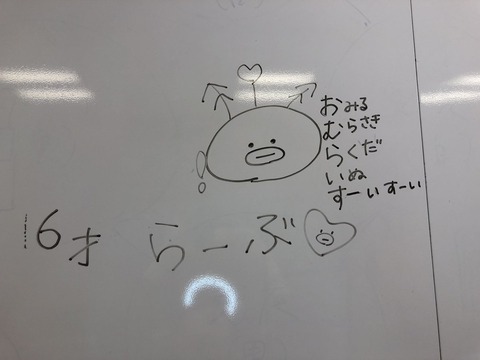 おみる
むらさき
らくだ
いぬ
すーいすーい
16才 らーぶ